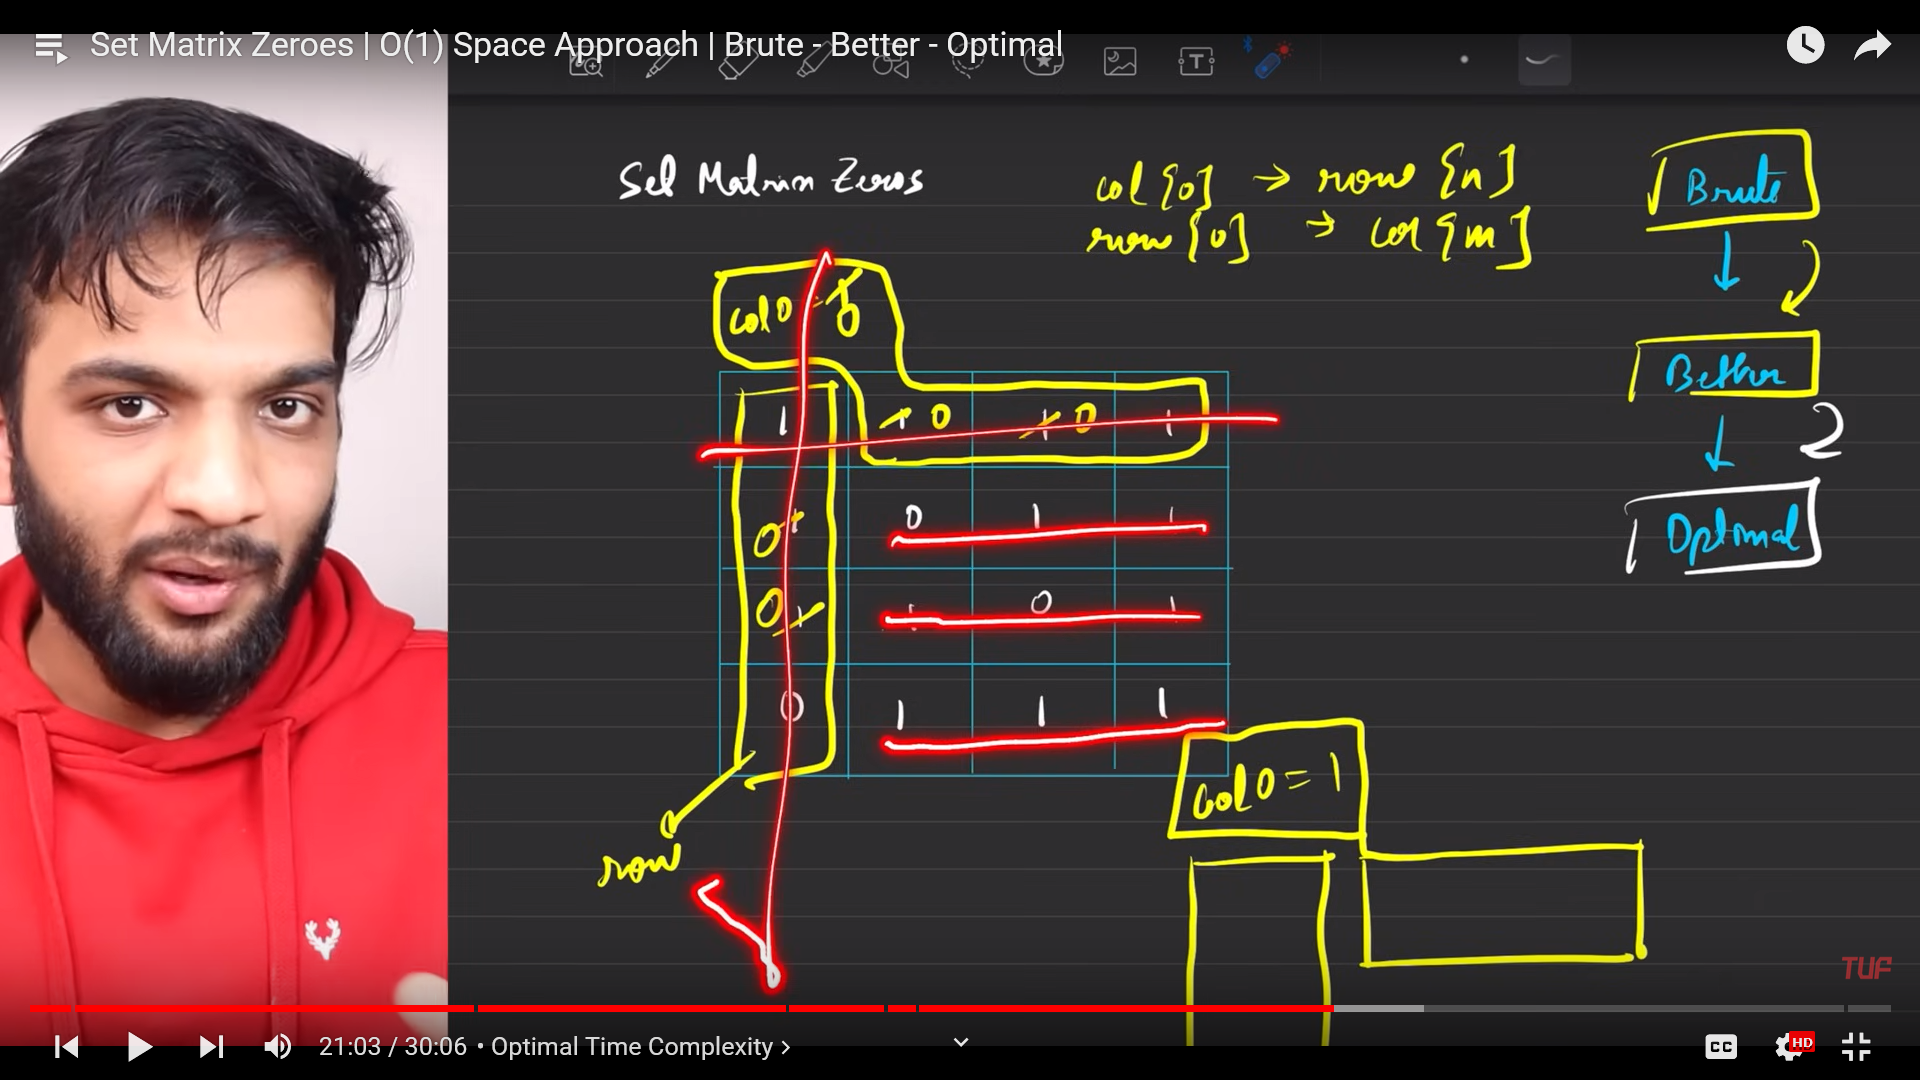 Set Matrix Zeroes | O(1) Space Approach | Brute - Better - Optimal
T
Set Matrix Zeros
col[0] → row[n]
row[0] → col[m]
Brute
Better
2
Optimal
col0 =
1 1 0 1 0 1
0 1 0 1 1
0 1 1 0 1
0 1 1 1
row
col0 = 1
TUF
21:03 / 30:06 • Optimal Time Complexity >
CC
HD